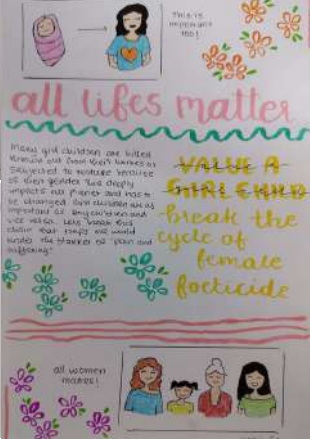 This is
important
too!
all lifes matter
Many girl children are killed
because of their gender
impacts our planet and has to
be changed. Girl children are as
important as boy children and
vice versa. Lets break this
chain that keeps our world
under the blanket of "pain and
suffering"
VALUE A
GIRL CHILD
break the
cycle of
female
foeticide
all women
matter!